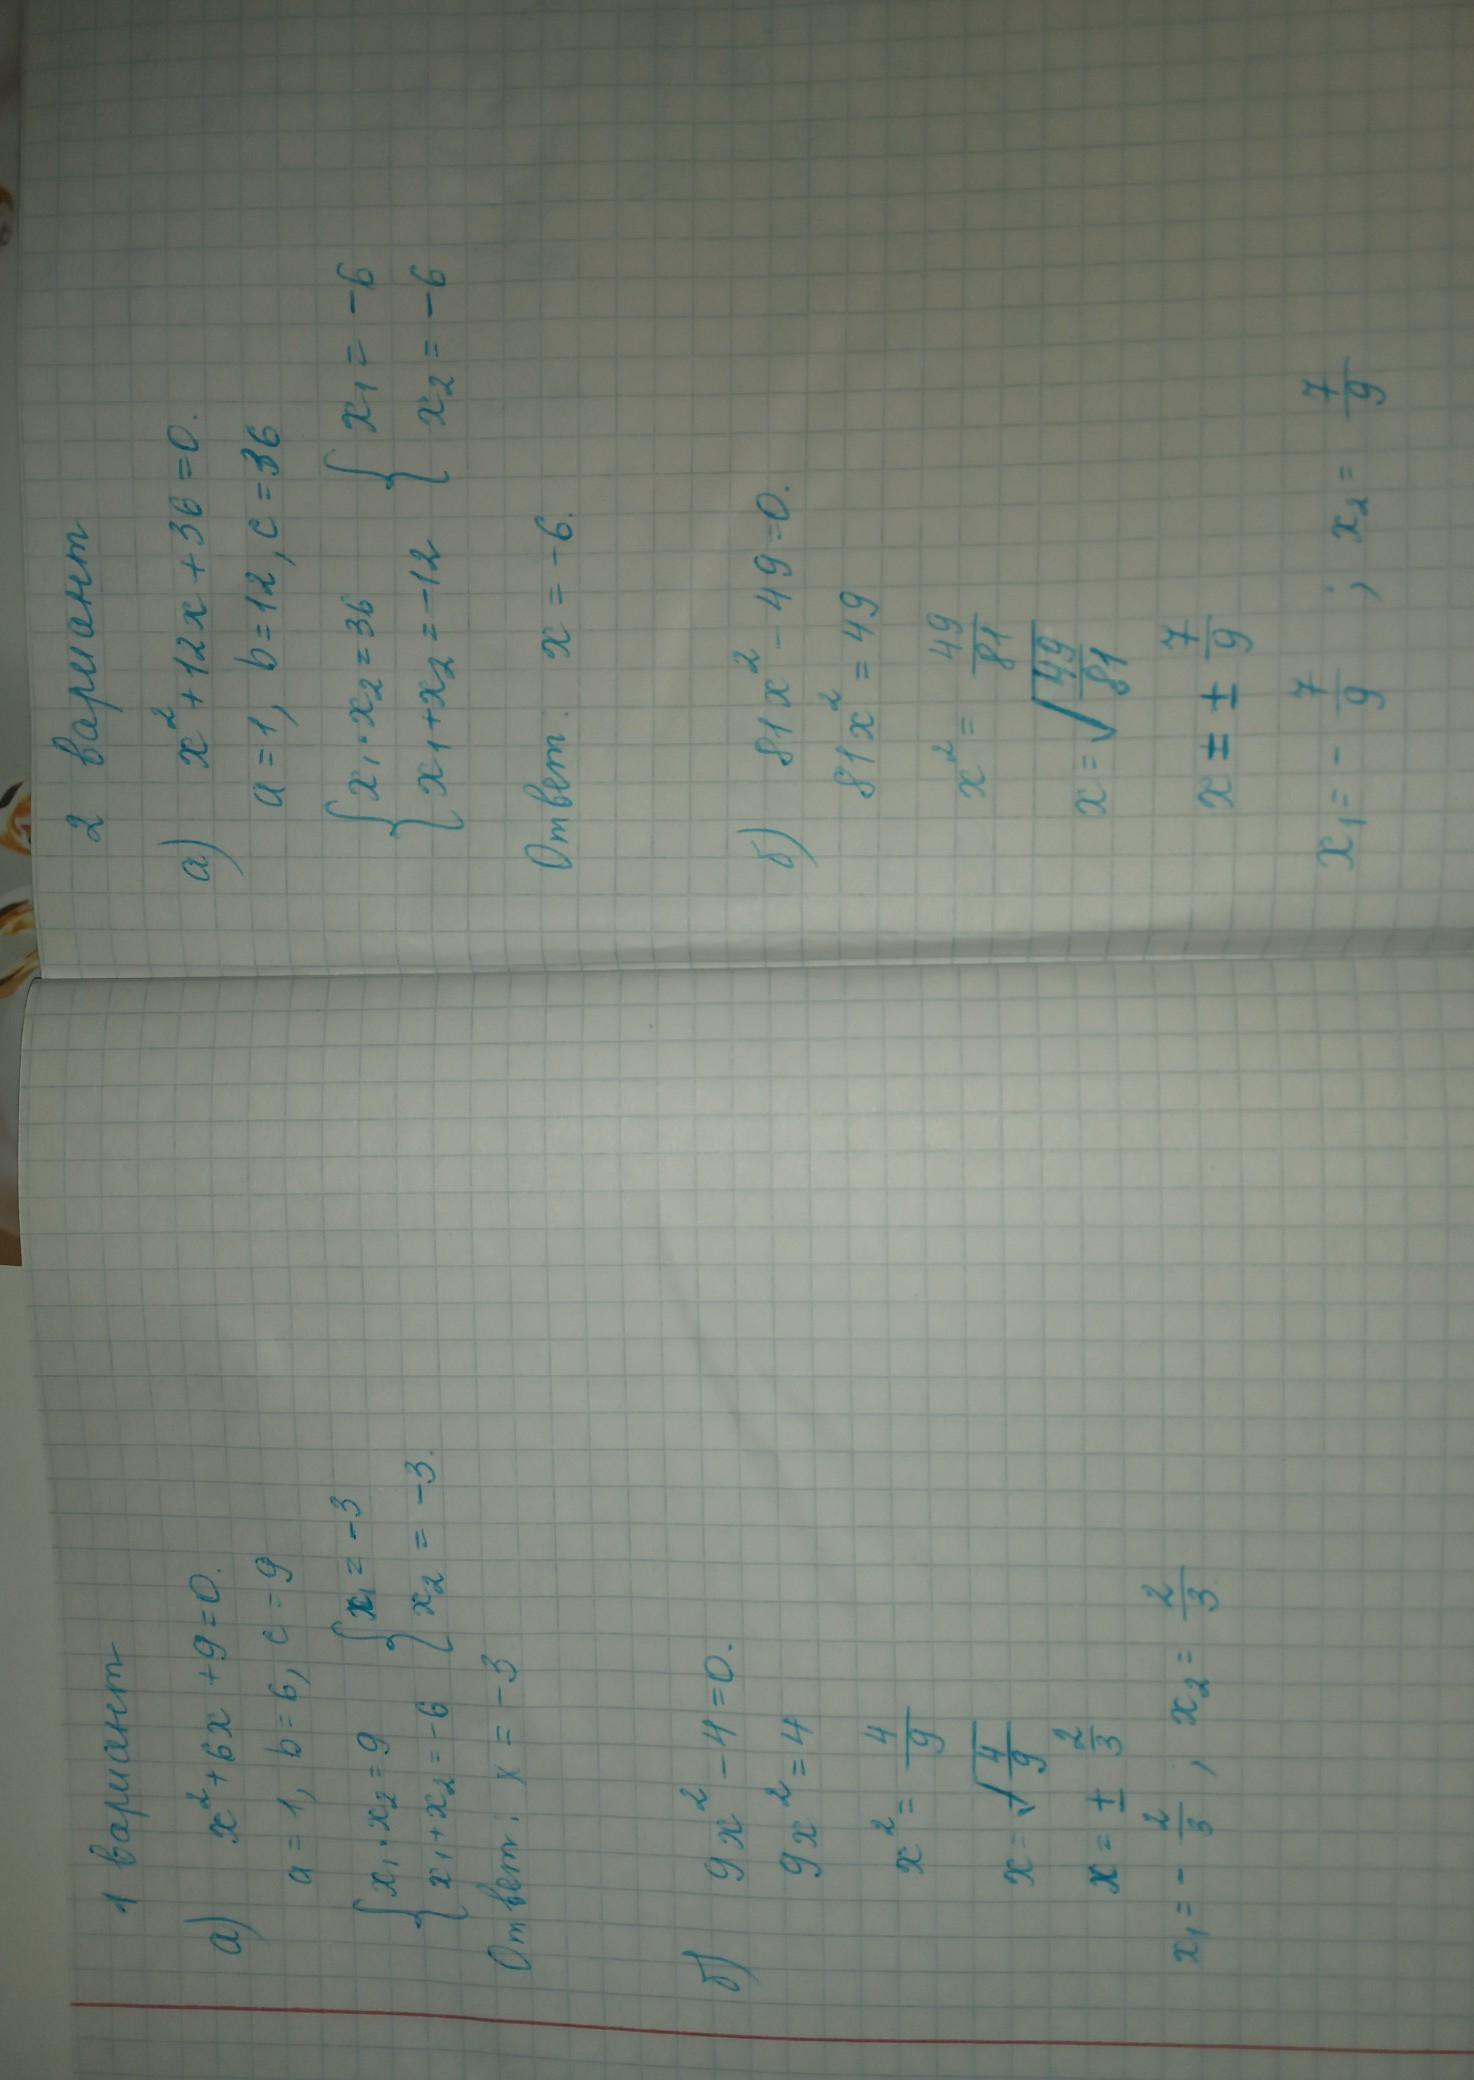 1 вариант
а) x² + 6x + 9 = 0.
a = 1, b = 6, c = 9
{ x₁ · x₂ = 9 { x₁ = -3
{ x₁ + x₂ = -6 { x₂ = -3.
Ответ: x = -3
б) 9x² - 4 = 0.
9x² = 4
x² = 4/9
x = √4/9
x = ± 2/3
x₁ = - 2/3, x₂ = 2/3
2 вариант
а) x² + 12x + 36 = 0.
a = 1, b = 12, c = 36
{ x₁ · x₂ = 36 { x₁ = -6
{ x₁ + x₂ = -12 { x₂ = -6
Ответ: x = -6.
б) 81x² - 49 = 0.
81x² = 49
x² = 49/81
x = √49/81
x = ± 7/9
x₁ = - 7/9 ; x₂ = 7/9